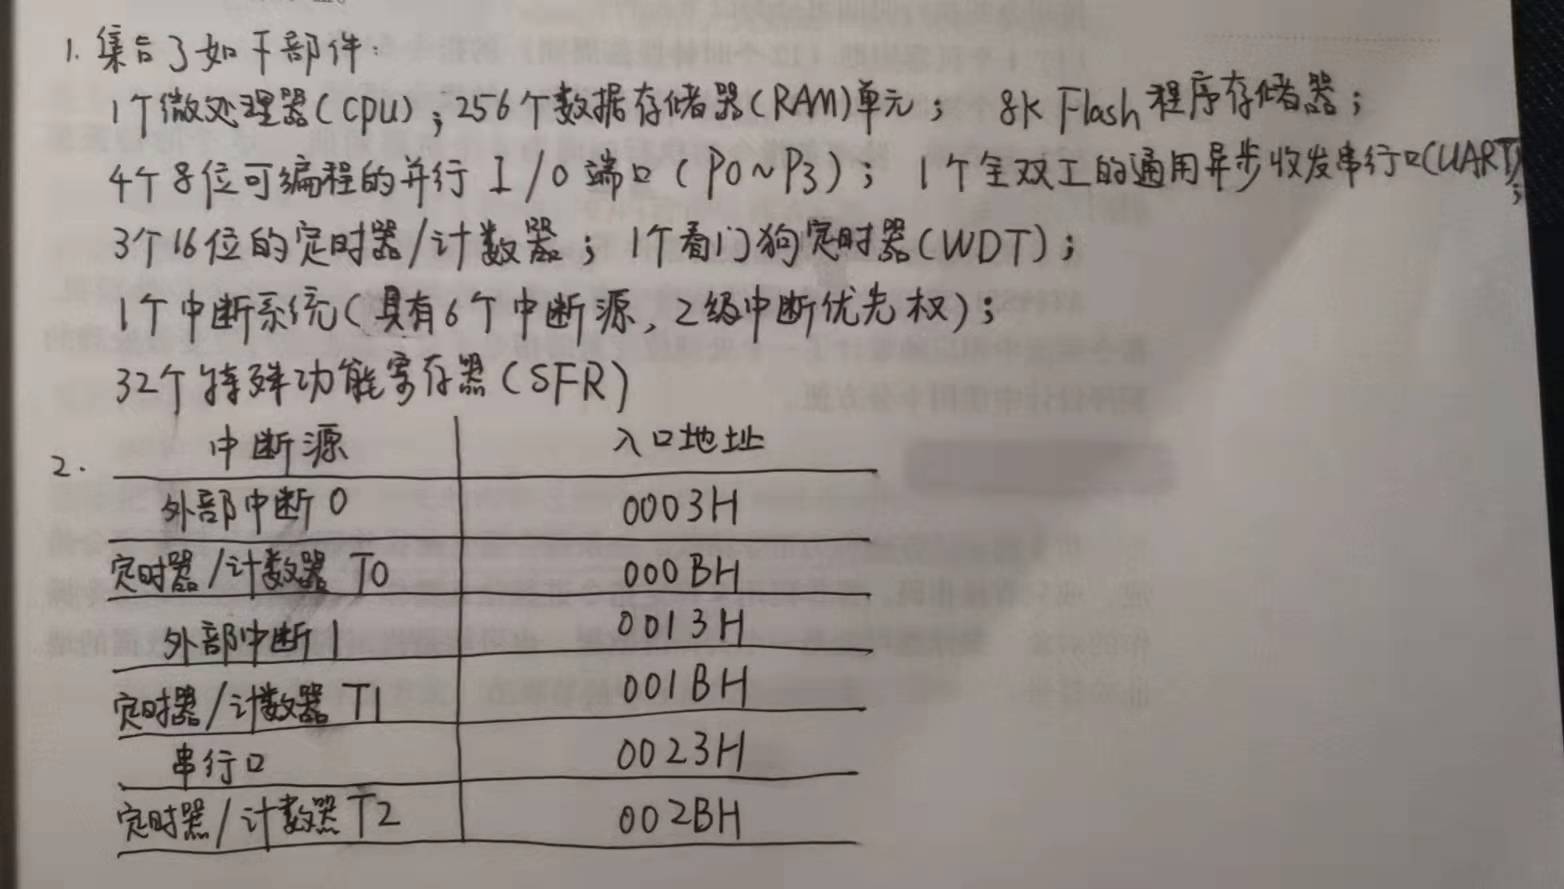 1. 集合了如下部件:
1个微处理器(CPU);256个数据存储器(RAM)单元; 8K Flash程序存储器;
4个8位可编程的并行I/O端口(P0~P3); 1个全双工的通用异步收发串行口(UART);
3个16位的定时器/计数器;1个看门狗定时器(WDT);
1个中断系统(具有6个中断源,2级中断优先权);
32个特殊功能寄存器(SFR)
2. 中断源 入口地址
外部中断0 0003H
定时器/计数器T0 000BH
外部中断1 0013H
定时器/计数器T1 001BH
串行口 0023H
定时器/计数器T2 002BH